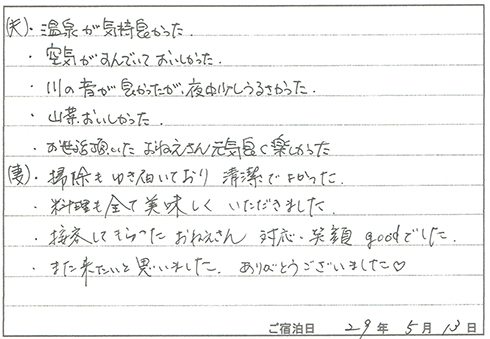 (夫)・温泉が気持良かった.
・空気がすんでいておいしかった.
・川の音が良かったが、夜中少しうるさかった.
・山菜おいしかった.
・お世話頂いた おねえさん元気良く楽しかった
(妻)・掃除もゆき届いており 清潔でよかった.
・料理も全て美味しく いただきました.
・接客してもらった おねえさん 対応・笑顔 goodでした.
・また来たいと思いました. ありがとうございました♡
ご宿泊日 29年 5月 13日